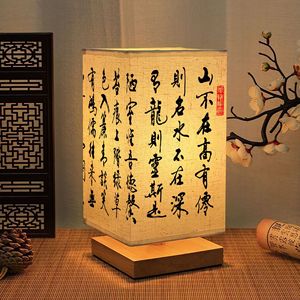 山不在高有僊
則名水不在深
有龍則靈斯是
陋室惟吾德馨
苔痕上階綠草
色入簾青談笑
有鴻儒往來